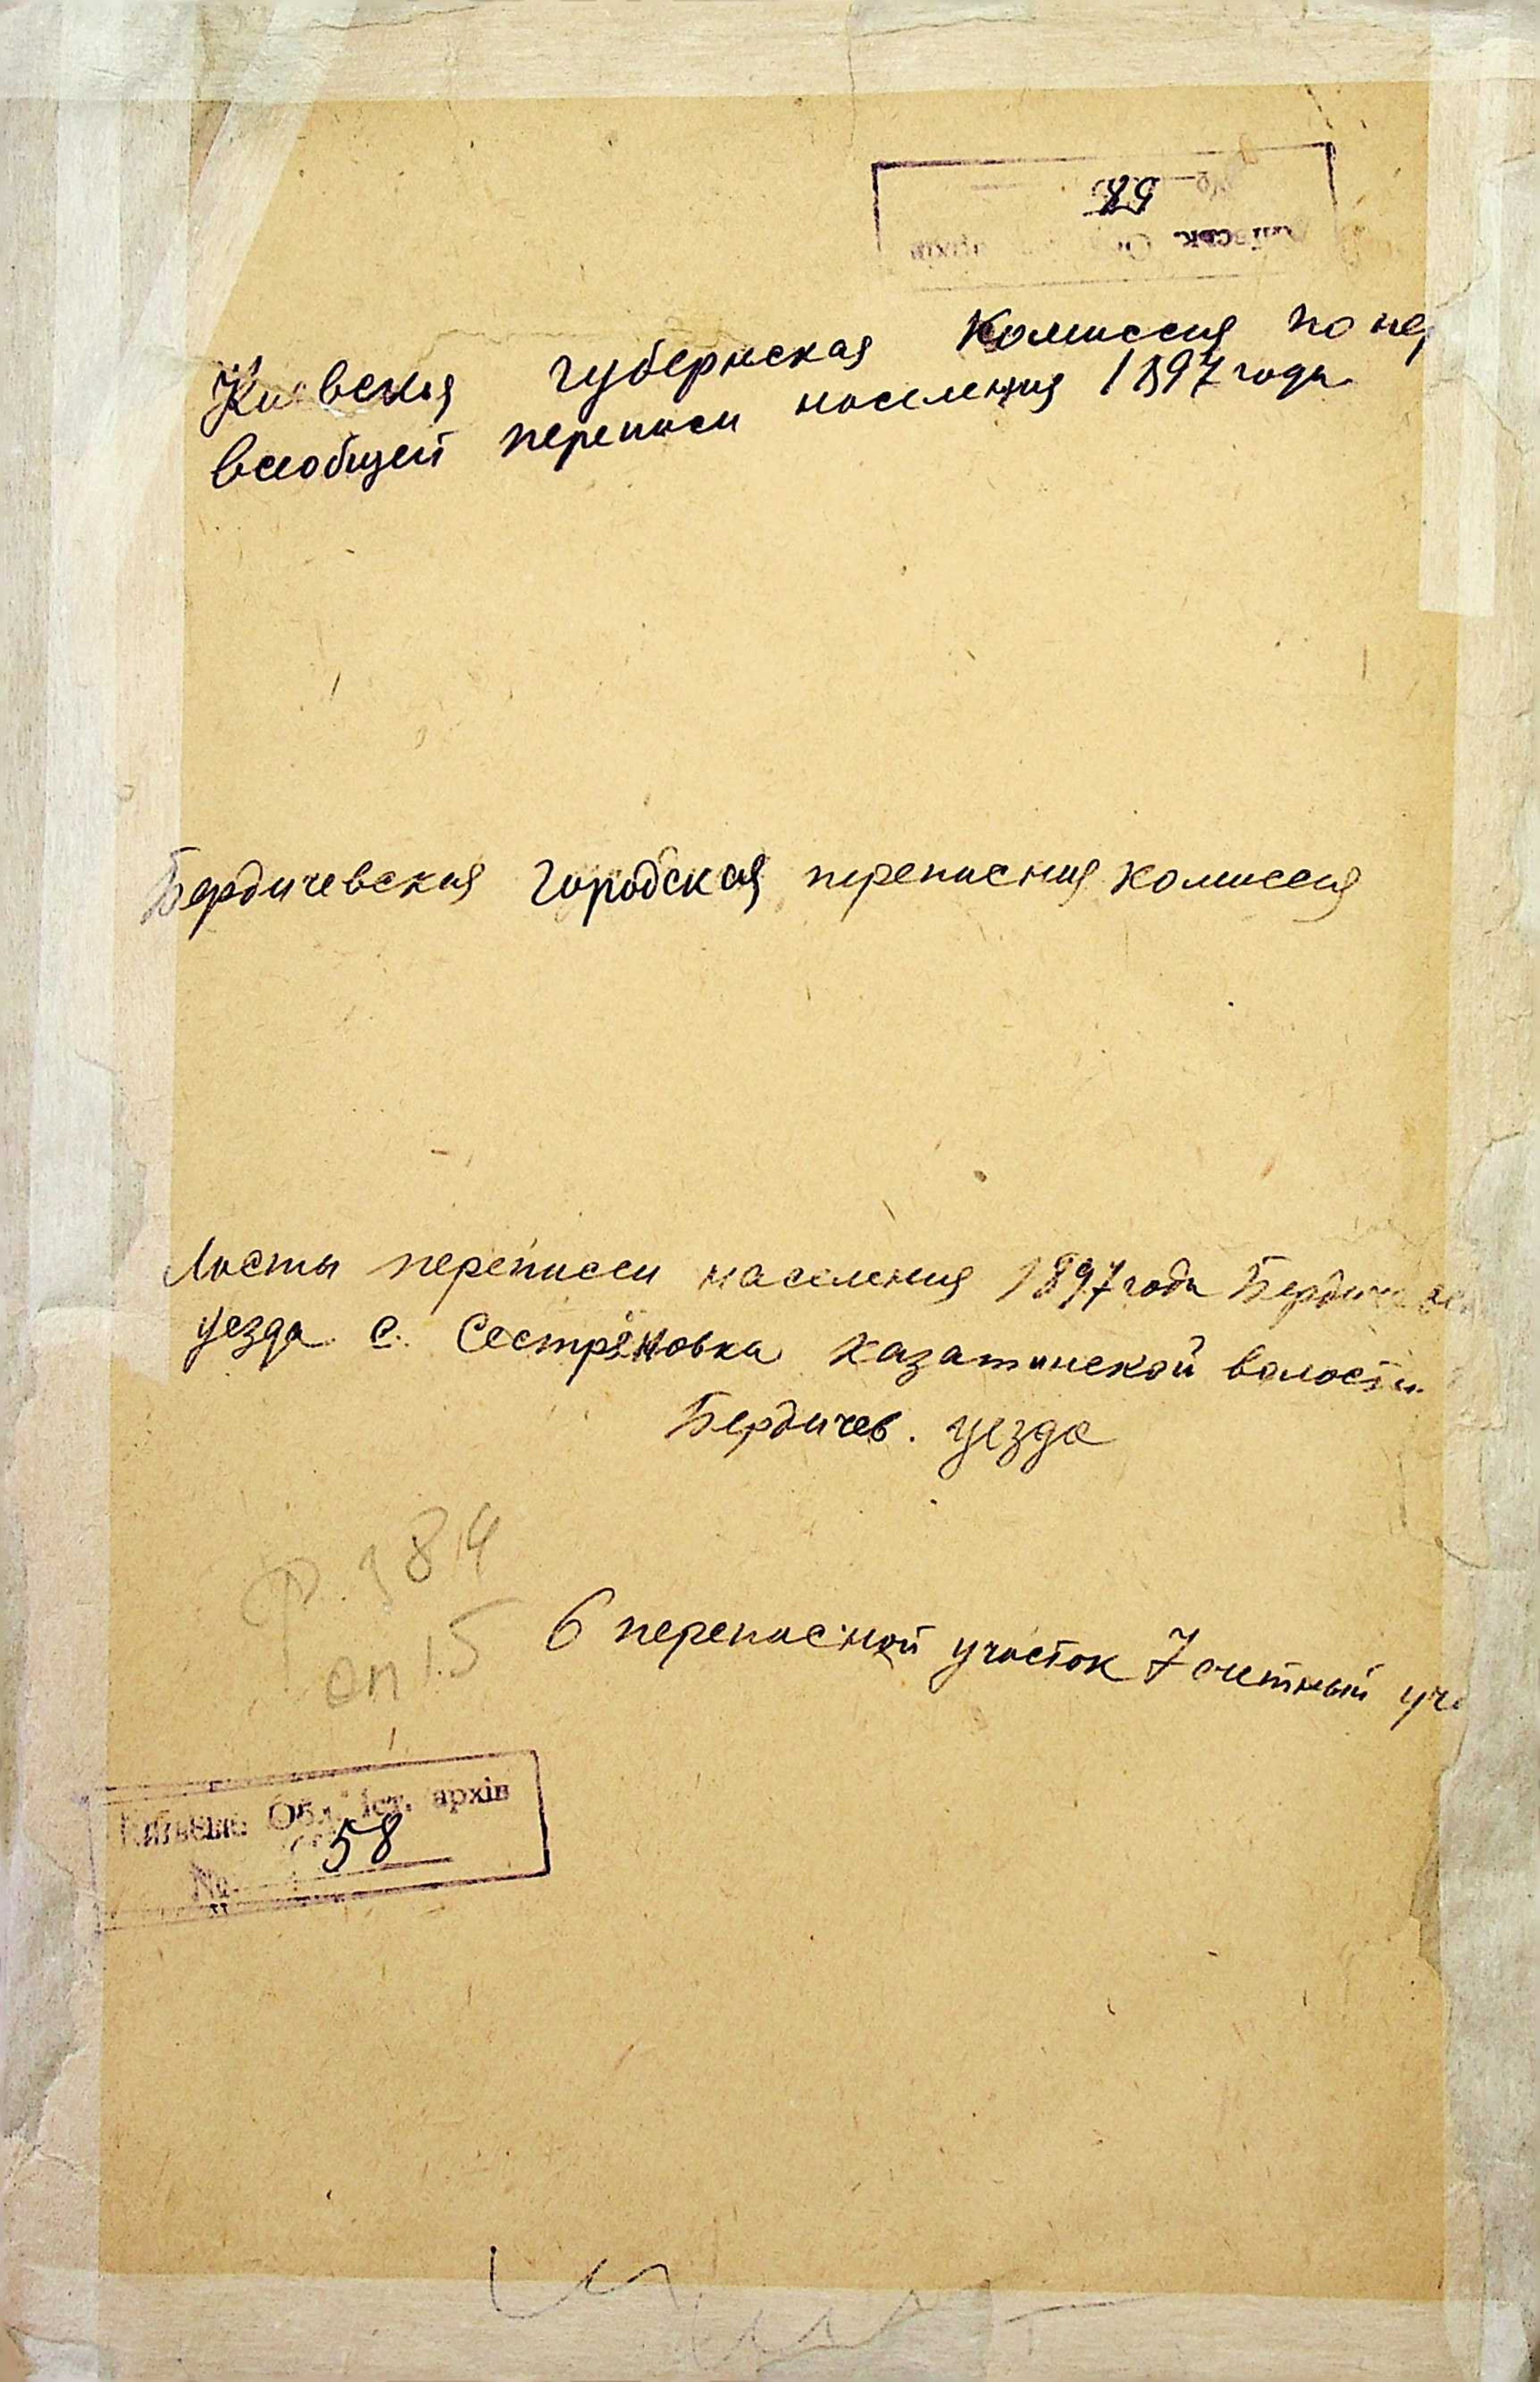 58
Киевская губернская комиссия по пер
всеобщей переписи населения 1897 года
Бердичевская городская переписная комиссия
Листы переписи населения 1897 года Бердичевск
уезда с. Сестрёновка Казатинской волости
Бердичев. уезда
ф. 384
оп. 5
6 переписной участок 7 счетный уча
Київськ. Обл. іст. архів
№ 58